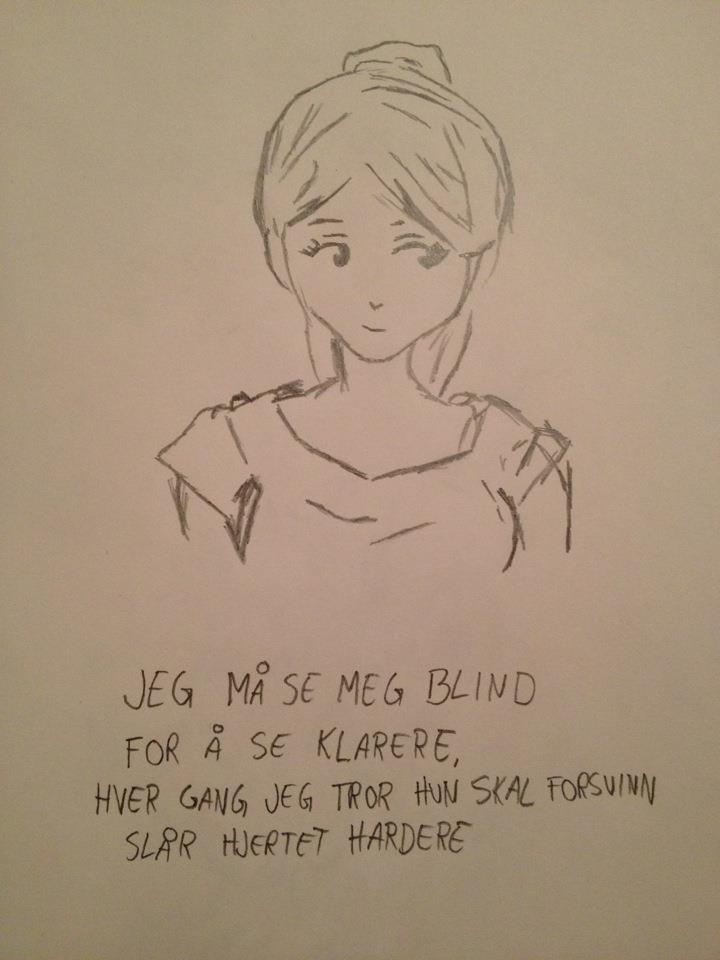 JEG MÅ SE MEG BLIND
FOR Å SE KLARERE,
HVER GANG JEG TROR HUN SKAL FORSVINN
SLÅR HJERTET HARDERE